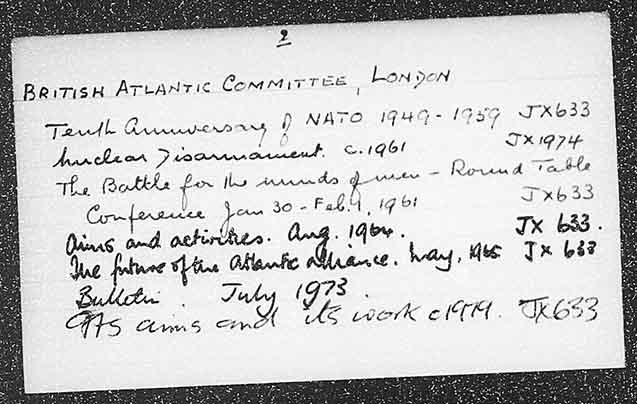 2
BRITISH ATLANTIC COMMITTEE, LONDON
Tenth Anniversary of NATO 1949-1959 JX633
Nuclear Disarmament. c.1961 JX1974
The Battle for the minds of men - Round Table
Conference Jan 30-Feb.1, 1961 JX633
Aims and activities. Aug. 1964. JX 633.
The future of the Atlantic alliance. May, 1965 JX 633
Bulletin. July 1973
Its aims and its work c1979. JX633